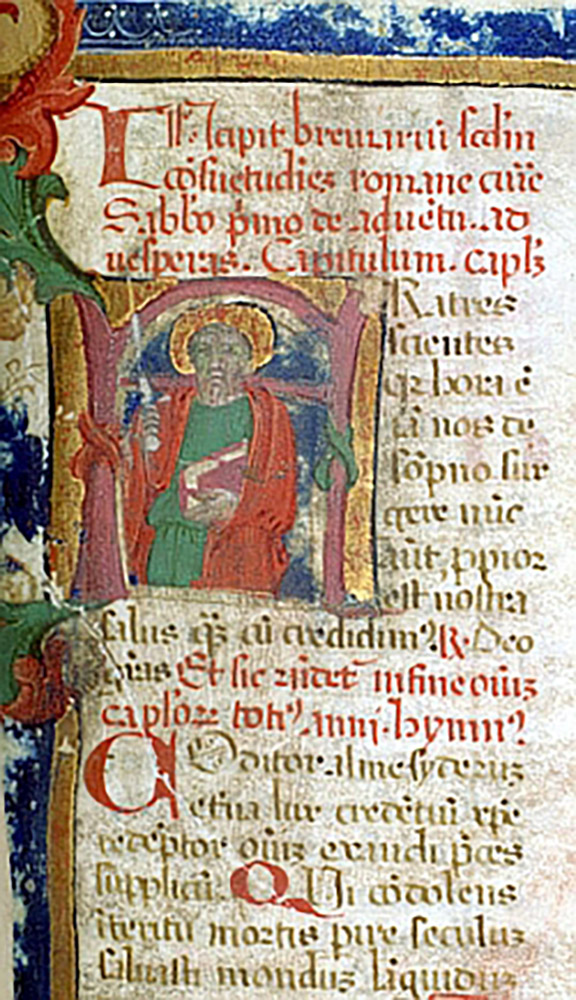 INcipit breuiariu scdm
cōsuetudiez romane curie
Sabbō p̄mo de aduētu. ad
uesperas. Capitulum. capl'z
Ratres
scientes
qz hora ē
iā nos de
sōpno sur
gere nūc
aūt ppior
est nostra
salus qz cū credidim⁹ R. Deo
gr̄as Et sic r̄ndet in fine oīuz
caplōꝝ toti⁹ anni. hymn⁹
COnditor alme syderuz
etna lux credētiū xp̄e
redēptor oīuz exaudi p̄ces
supplicū. QUi cōdolens
īteritu mortis pire seculuz
saluasti monduz liquiduz